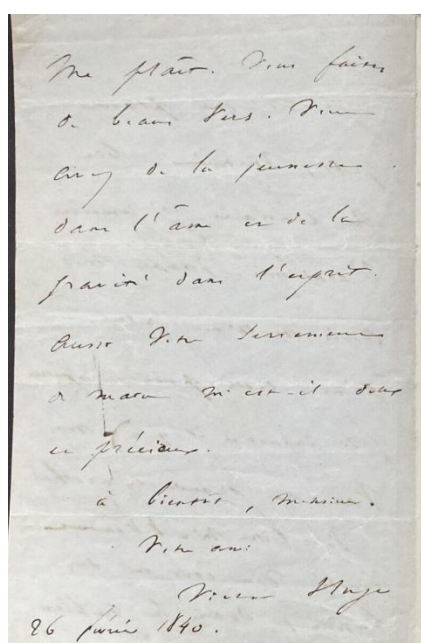 me plaît. Vous faites
de beaux vers. Vous
avez de la jeunesse
dans l'âme et de la
gravité dans l'esprit.
Aussi votre serrement
de main m'est-il doux
et précieux.
à bientôt, monsieur.
Votre ami
Victor Hugo
26 février 1840.